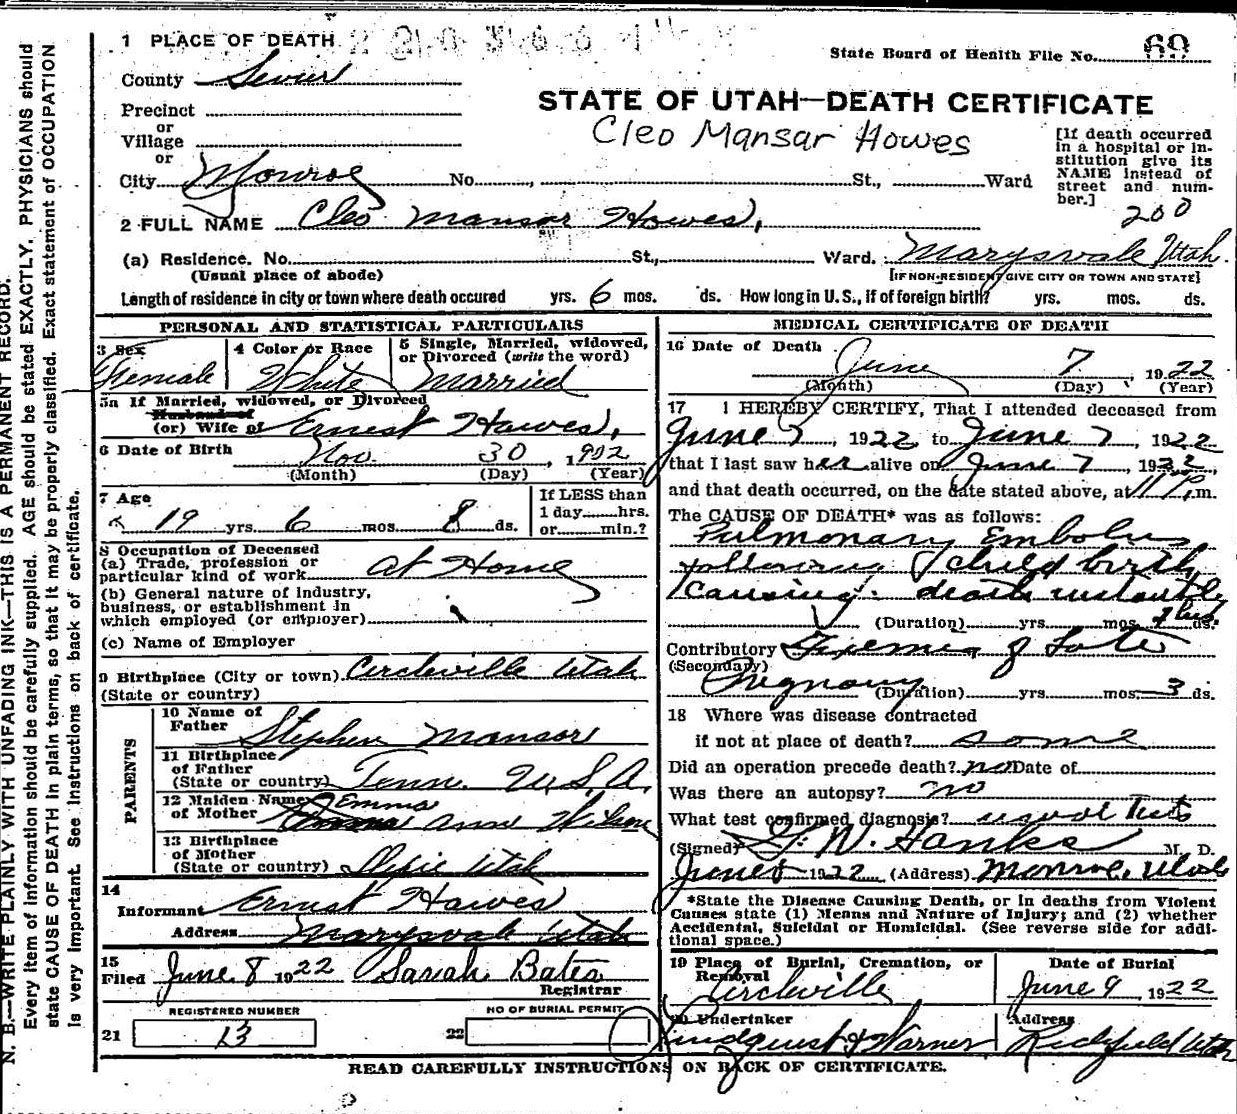 1 PLACE OF DEATH
State Board of Health File No. 69
County Sevier
STATE OF UTAH—DEATH CERTIFICATE
Precinct
or
Village
or
Cleo Mansar Howes
[If death occurred in a hospital or institution give its NAME instead of street and number.]
City Monroe No. , St., Ward
200
2 FULL NAME Cleo Mansor Howes,
(a) Residence. No. St., Ward. Marysvale Utah.
(Usual place of abode) [IF NON-RESIDENT GIVE CITY OR TOWN AND STATE]
Length of residence in city or town where death occured yrs. 6 mos. ds. How long in U. S., if of foreign birth? yrs. mos. ds.
PERSONAL AND STATISTICAL PARTICULARS
3 Sex 4 Color or Race 5 Single, Married, widowed, or Divorced (write the word)
Female White Married
5a If Married, widowed, or Divorced
Husband of
(or) Wife of Ernest Howes,
6 Date of Birth Nov. 30, 1902
(Month) (Day) (Year)
7 Age 19 yrs. 6 mos. 8 ds.
If LESS than
1 day hrs.
or min.?
8 Occupation of Deceased
(a) Trade, profession or
particular kind of work at Home
(b) General nature of Industry,
business, or establishment in
which employed (or employer)
(c) Name of Employer
9 Birthplace (City or town) Circleville Utah
(State or country)
PARENTS
10 Name of
Father Stephen Mansor
11 Birthplace
of Father
(State or country) Tenn. U.S.A.
12 Maiden Name
of Mother Emma Ann
13 Birthplace
of Mother
(State or country) Utah
14
Informant Ernest Howes
Address Marysvale Utah
15
Filed June 8 1922 Sarah Bates
Registrar
REGISTERED NUMBER NO OF BURIAL PERMIT
21 13 22
MEDICAL CERTIFICATE OF DEATH
16 Date of Death June 7 1922
(Month) (Day) (Year)
17 I HEREBY CERTIFY, That I attended deceased from
June 7, 1922, to June 7, 1922
that I last saw her alive on June 7, 1922,
and that death occurred, on the date stated above, at 11 P.m.
The CAUSE OF DEATH* was as follows:
Pulmonary Embolus
following child birth
Causing death instantly
(Duration) yrs. mos. ds.
Contributory of Late
(Secondary)
Pregnancy (Duration) yrs. mos. 3 ds.
18 Where was disease contracted
if not at place of death? same
Did an operation precede death? no Date of
Was there an autopsy? no
What test confirmed diagnosis? usual tests
(Signed) G. W. Hanks M. D.
June 8 1922 (Address) Monroe, Utah
*State the Disease Causing Death, or in deaths from Violent
Causes state (1) Means and Nature of Injury; and (2) whether
Accidental, Suicidal or Homicidal. (See reverse side for addi-
tional space.)
19 Place of Burial, Cremation, or Date of Burial
Removal
Circleville June 9, 1922
20 Undertaker Address
Lindquist & Warner Richfield Utah
READ CAREFULLY INSTRUCTIONS ON BACK OF CERTIFICATE.
N. B.—WRITE PLAINLY WITH UNFADING INK—THIS IS A PERMANENT RECORD.
Every item of information should be carefully supplied. AGE should be stated EXACTLY. PHYSICIANS should
state CAUSE OF DEATH in plain terms, so that it may be properly classified. Exact statement of OCCUPATION
is very important. See instructions on back of certificate.